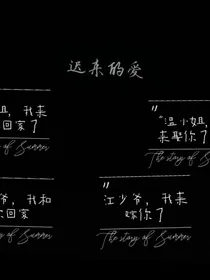 迟来的爱
姐，我来
回家了
y of Summer
"温小姐，
来娶你了
The story of
爷，我和
回家了
of Summer
江少爷，我来
嫁你了
The story of Summer